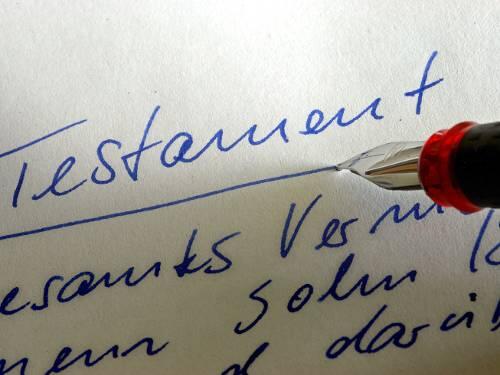 Testament
esamtes Verm
mein Sohn
darüb